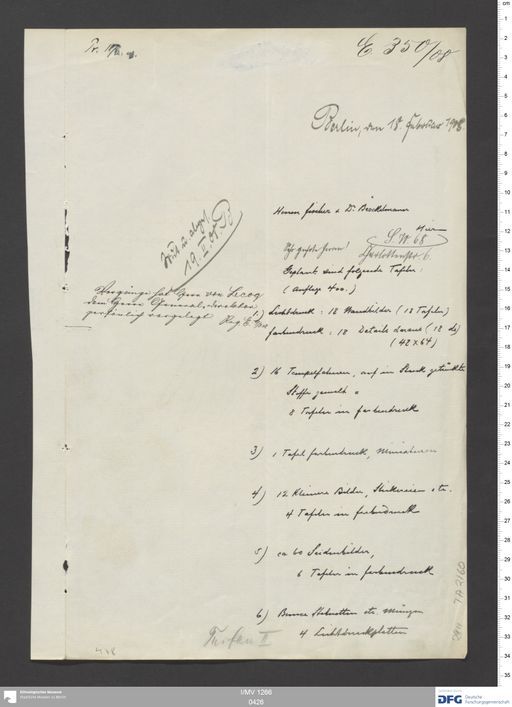 E 350/08
Berlin, den 18. Februar 1908.
Herren Fischer & Dr.
Hier
S.W. 68
Sehr geehrte Herren!
Charlottenstr. 6.
Geplant sind folgende Tafeln:
(Auflage 400.)
19. II. 08
Vorgänge hat Herr von Lecoq
dem Herrn Generaldirektor
persönlich vorgelegt
1) Lichtdruck: 18 Wandbilder (18 Tafeln)
Farbendruck: 18 Details daraus (18 do)
(42 x 64)
2) 16 Tempelfahnen, auf in Stuck getränkte
Stoffe gemalt
8 Tafeln in Farbendruck
3) 1 Tafel Farbendruck, Miniaturen
4) 12 kleinere Bilder, Stickereien etc.
4 Tafeln in Farbendruck
5) ca 60 Seidenbilder,
6 Tafeln in Farbendruck
6) Bronze Statuetten etc. Münzen
4 Lichtdruckplatten
Turfan II
TA 2160
Ethnologisches Museum
Staatliche Museen zu Berlin
I/MV 1266
0426
gefördert durch
DFG Deutsche
Forschungsgemeinschaft